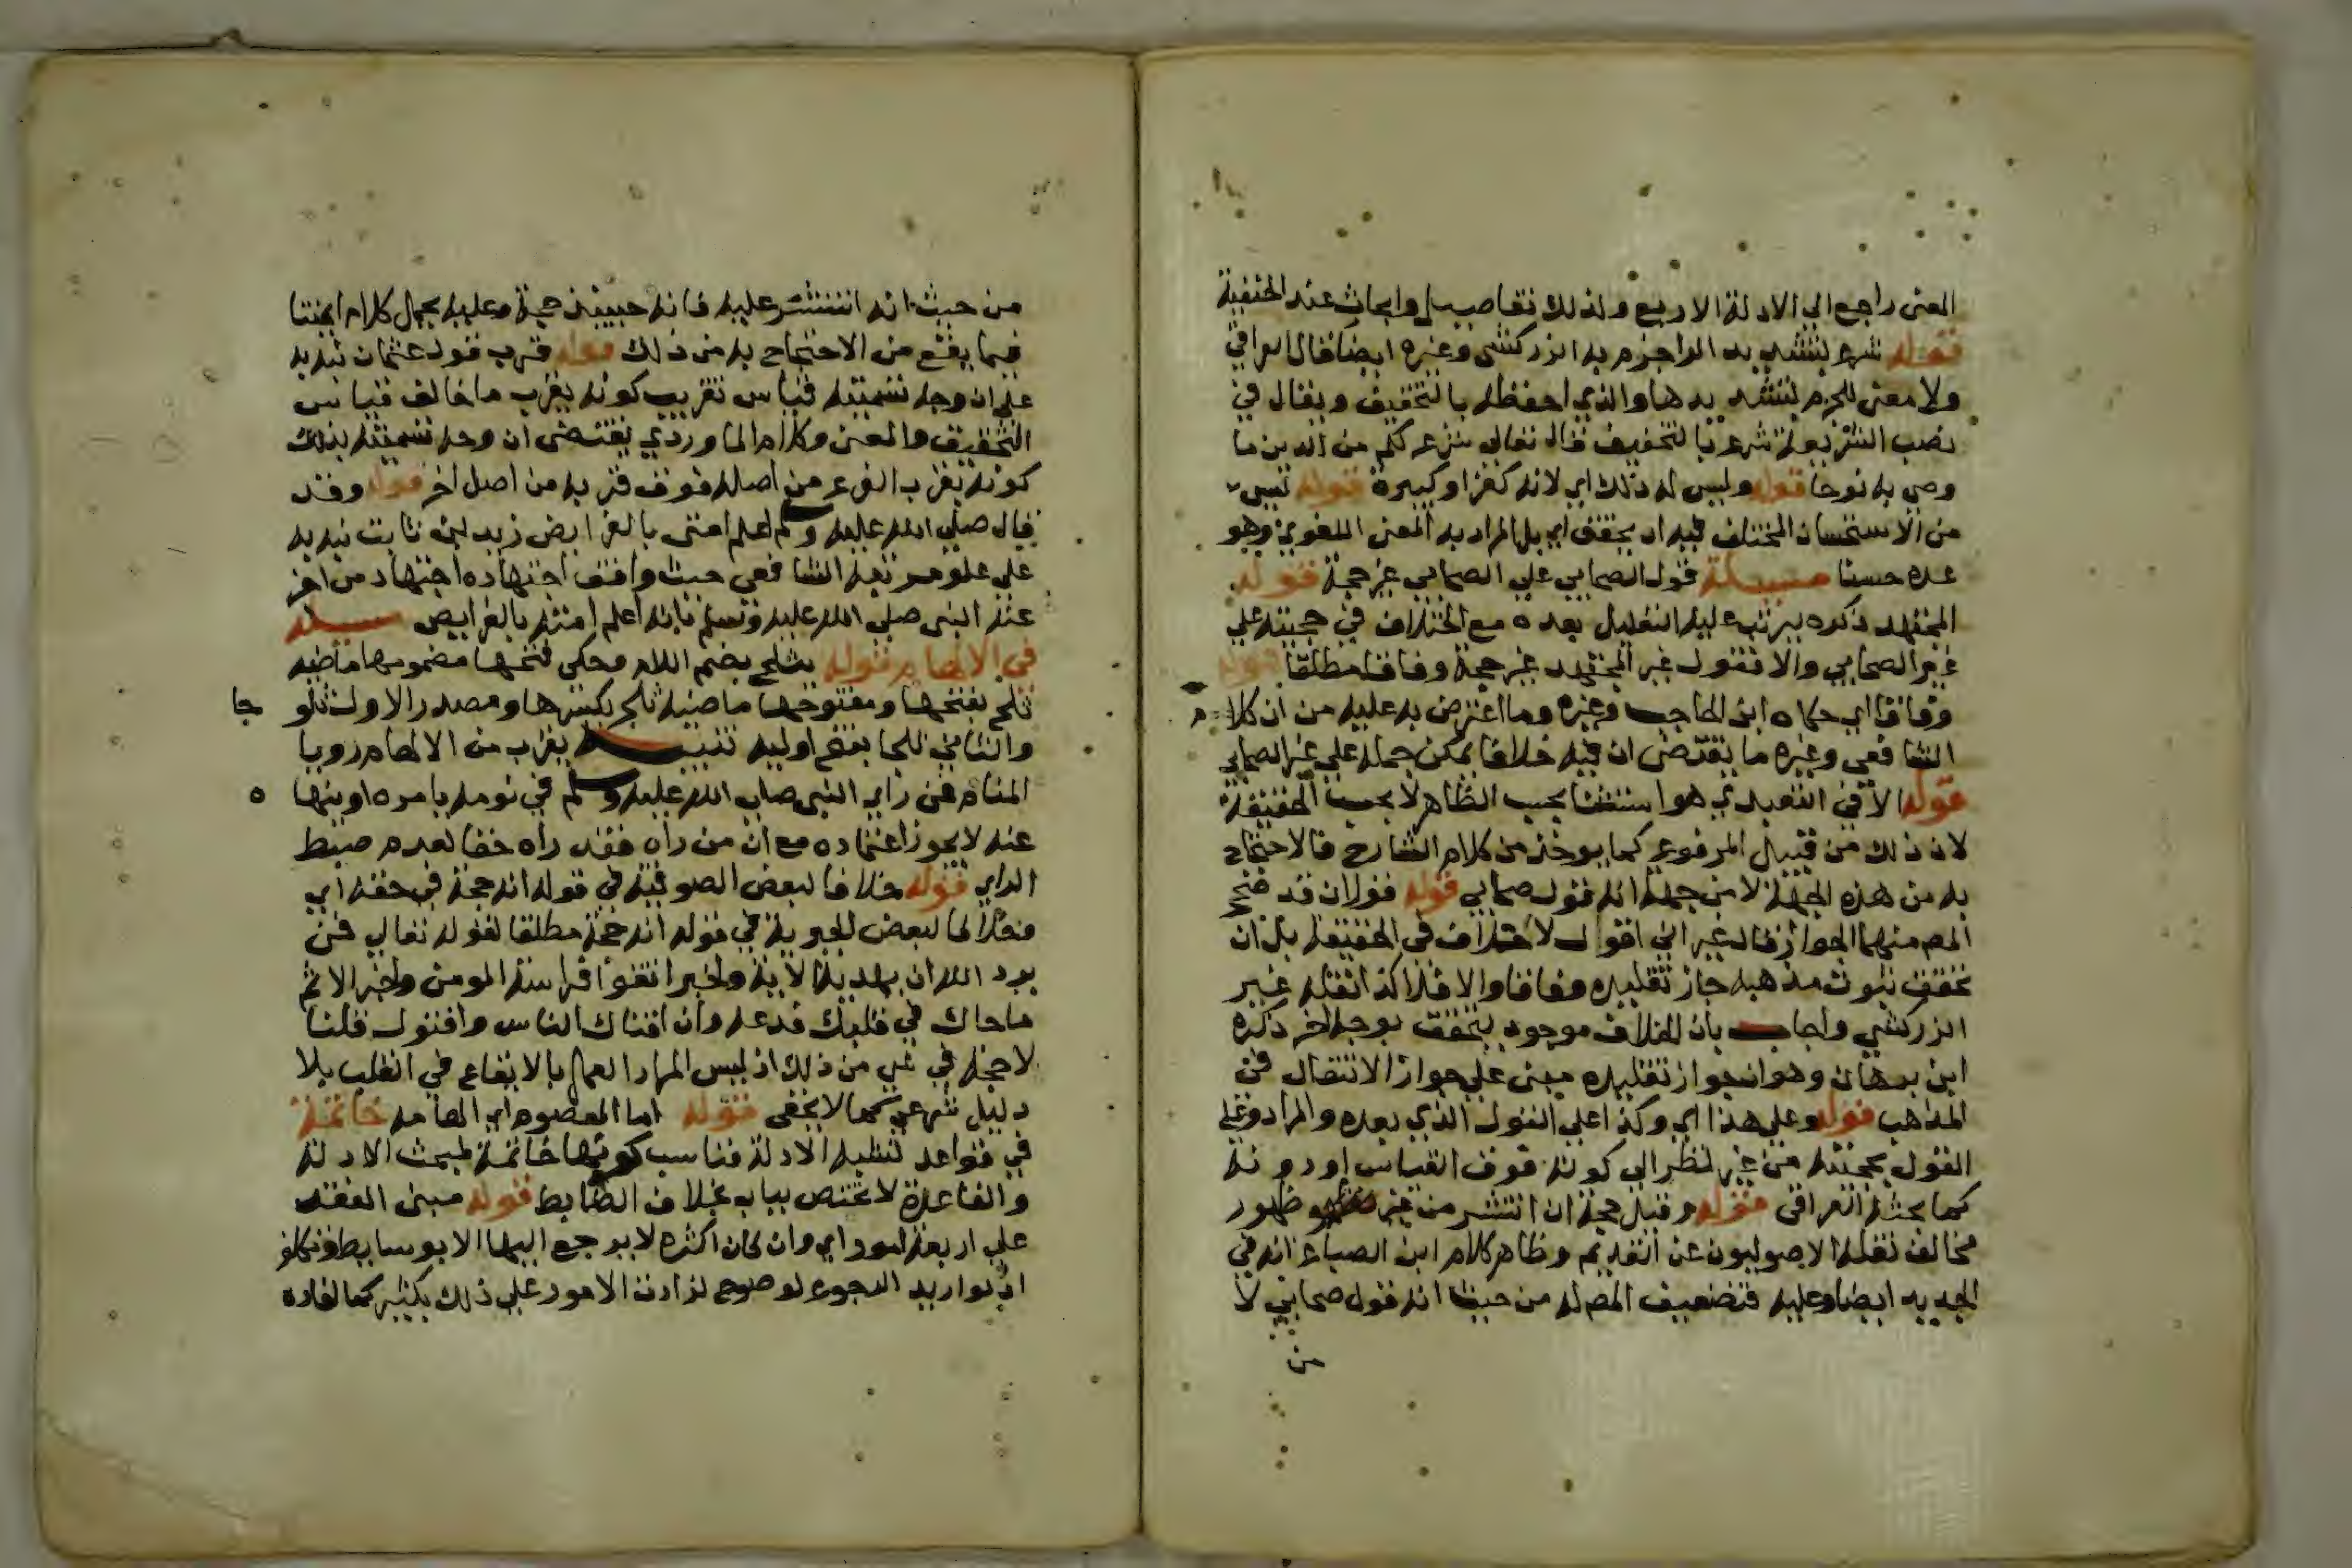 المعنى راجع الى الادلة الاربع ولذلك تفاصيل وابحاث عند الحنفية
قوله شرع بتشديد الراجزم به الزركشي وغيره ايضا قال العراقي
ولا معنى للجزم بتشديدها والذي احفظه بالتخفيف ويقال في
نصب الشريعة شرع بالتخفيف قال تعالى شرع لكم من الدين ما
وصى به نوحا قوله وليس له ذلك اي لانه كفر او كبيرة قوله ليس
من الاستحسان المختلف فيه ان تحقق اي بل المراد به المعنى اللغوي وهو
عده حسنا مسئلة قول الصحابي على الصحابي غير حجة قوله
المجتهد ذكره يترتب عليه التعليل بعده مع الخلاف في حجيته على
غير الصحابي والا فقول غير المجتهد غير حجة وفاقا مطلقا قوله
وفاقا اي حكاه ابن الحاجب وغيره وما اعترض به عليه من ان كلام
الشافعي وغيره ما يقتضي ان فيه خلافا يمكن حمله على غير الصحابي
قوله الا في التعبدي هو استثنا بحسب الظاهر لا بحسب الحقيقة
لان ذلك من قبيل المرفوع كما يوخذ من كلام الشارح فالاحتجاج
به من هذه الجهة لا من جهة انه قول صحابي قوله قولان قد صحح
المص منهما الجواز قال غير اني اقول لا خلاف في الحقيقة بل ان
تحقق ثبوت مذهبه جاز تقليده وفاقا والا فلا كذا نقله غير
الزركشي واجاب بان الخلاف موجود يتحقق بوجه اخر ذكره
ابن برهان وهو ان جواز تقليده مبنى على جواز الانتقال في
المذاهب قوله وعلى هذا اي وكذا على القول الذي بعده والمراد وعلى
القول بحجيته من غير نظر الى كونه فوق القياس او دونه
كما بحثه العراقي قوله وقيل حجة ان انتشر من غير ظهور
مخالف نقله الاصوليون عن القديم وظاهر كلام ابن الصباغ انه في
الجديد ايضا وعليه فتضعيف المص له من حيث انه قول صحابي لا
من
من حيث انه انتشر عليه فانه حينئذ حجة وعليه يحمل كلام ايمتنا
فيما يقع من الاحتجاج به من ذلك قوله قرب قول عثمان نبه به
على ان وجه تسميته قياس تقريب كونه يقرب ما خالف قياس
التحقيق والمعنى وكلام الماوردي يقتضى ان وجه تسميته بذلك
كونه يقرب الفرع من اصله فوق قربه من اصل اخر قوله وقد
قال صلى الله عليه وسلم اعلم امتى بالفرايض زيد بن ثابت نبه به
على علو مرتبة الشافعي حيث وافق اجتهاده اجتهاد من اخبر
عنه النبى صلى الله عليه وسلم بانه اعلم امته بالفرايض مسئلة
في الالهام قوله يثلج بضم اللام وحكى فتحها مضمومها ماضيه
ثلج بفتحها ومفتوحها ماضيه ثلج بكسرها ومصدر الاول ثلو جا
والثاني ثلجا بفتح اوليه تنبيه يقرب من الالهام رويا
المنام فمن راى النبى صلى الله عليه وسلم في نومه يامره او ينهاه
عنه لا يجوز اعتماده مع ان من راه فقد راه حقا لعدم ضبط
الراي قوله خلافا لبعض الصوفية في قوله انه حجة في حقه اي
وخلافا لبعض الجبرية في قوله انه حجة مطلقا لقوله تعالى فمن
يرد الله ان يهديه الاية ولخبر اتقوا فراسة المومن ولخبر الاثم
ما حاك في قلبك فدعه وان افتاك الناس وافتوك قلنا
لا حجة في شي من ذلك اذ ليس المراد العمل بالايقاع في القلب بلا
دليل شرعي كما لا يخفى قوله اما المعصوم اي الهامه خاتمة
في قواعد لتشبه الادلة فناسب كونها خاتمة لمبحث الادلة
والقاعدة لا تختص بباب بخلاف الضابط قوله مبنى الفقه
على اربعة امور اي وان كان اكثره لا يرجع اليها الا بوسايط وتكلف
اذ لو اريد الرجوع لوضوح لزادت الامور على ذلك بكثير كما افاده